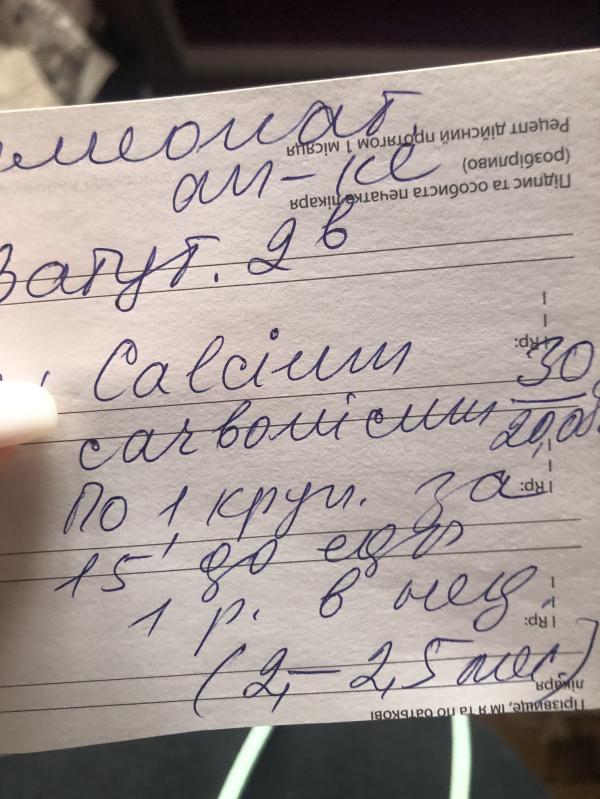 меопат.
Рецепт дійсний протягом 1 місяця
ап-ке
(розбірливо)
Підпис та особиста печатка лікаря
Ватут. 2 в
Rp:
Calcium 30
carbonicum 20,0
Rp:
По 1 круп. за
15' до еды
Rp:
1 р. в нед.
(2,–2,5 мес)
лікаря
Прізвище, ім'я та по батькові